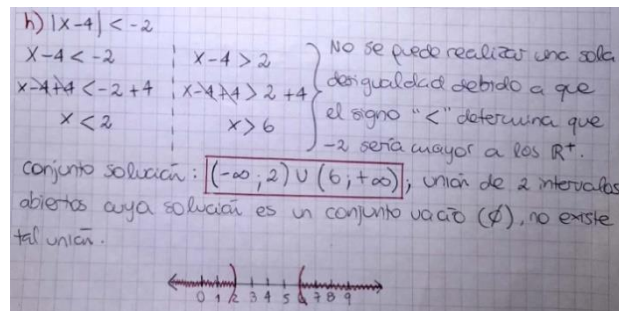 h) |x-4| < -2
x-4 < -2 | x-4 > 2 } No se puede realizar una sola
x-4+4 < -2+4 | x-4+4 > 2+4 desigualdad debido a que
x < 2 | x > 6 el signo "<" determina que
-2 sería mayor a los R⁺.
conjunto solución: (-∞; 2) ∪ (6; +∞), unión de 2 intervalos
abiertos cuya solución es un conjunto vacío (∅), no existe
tal unión.
0 1 2 3 4 5 6 7 8 9